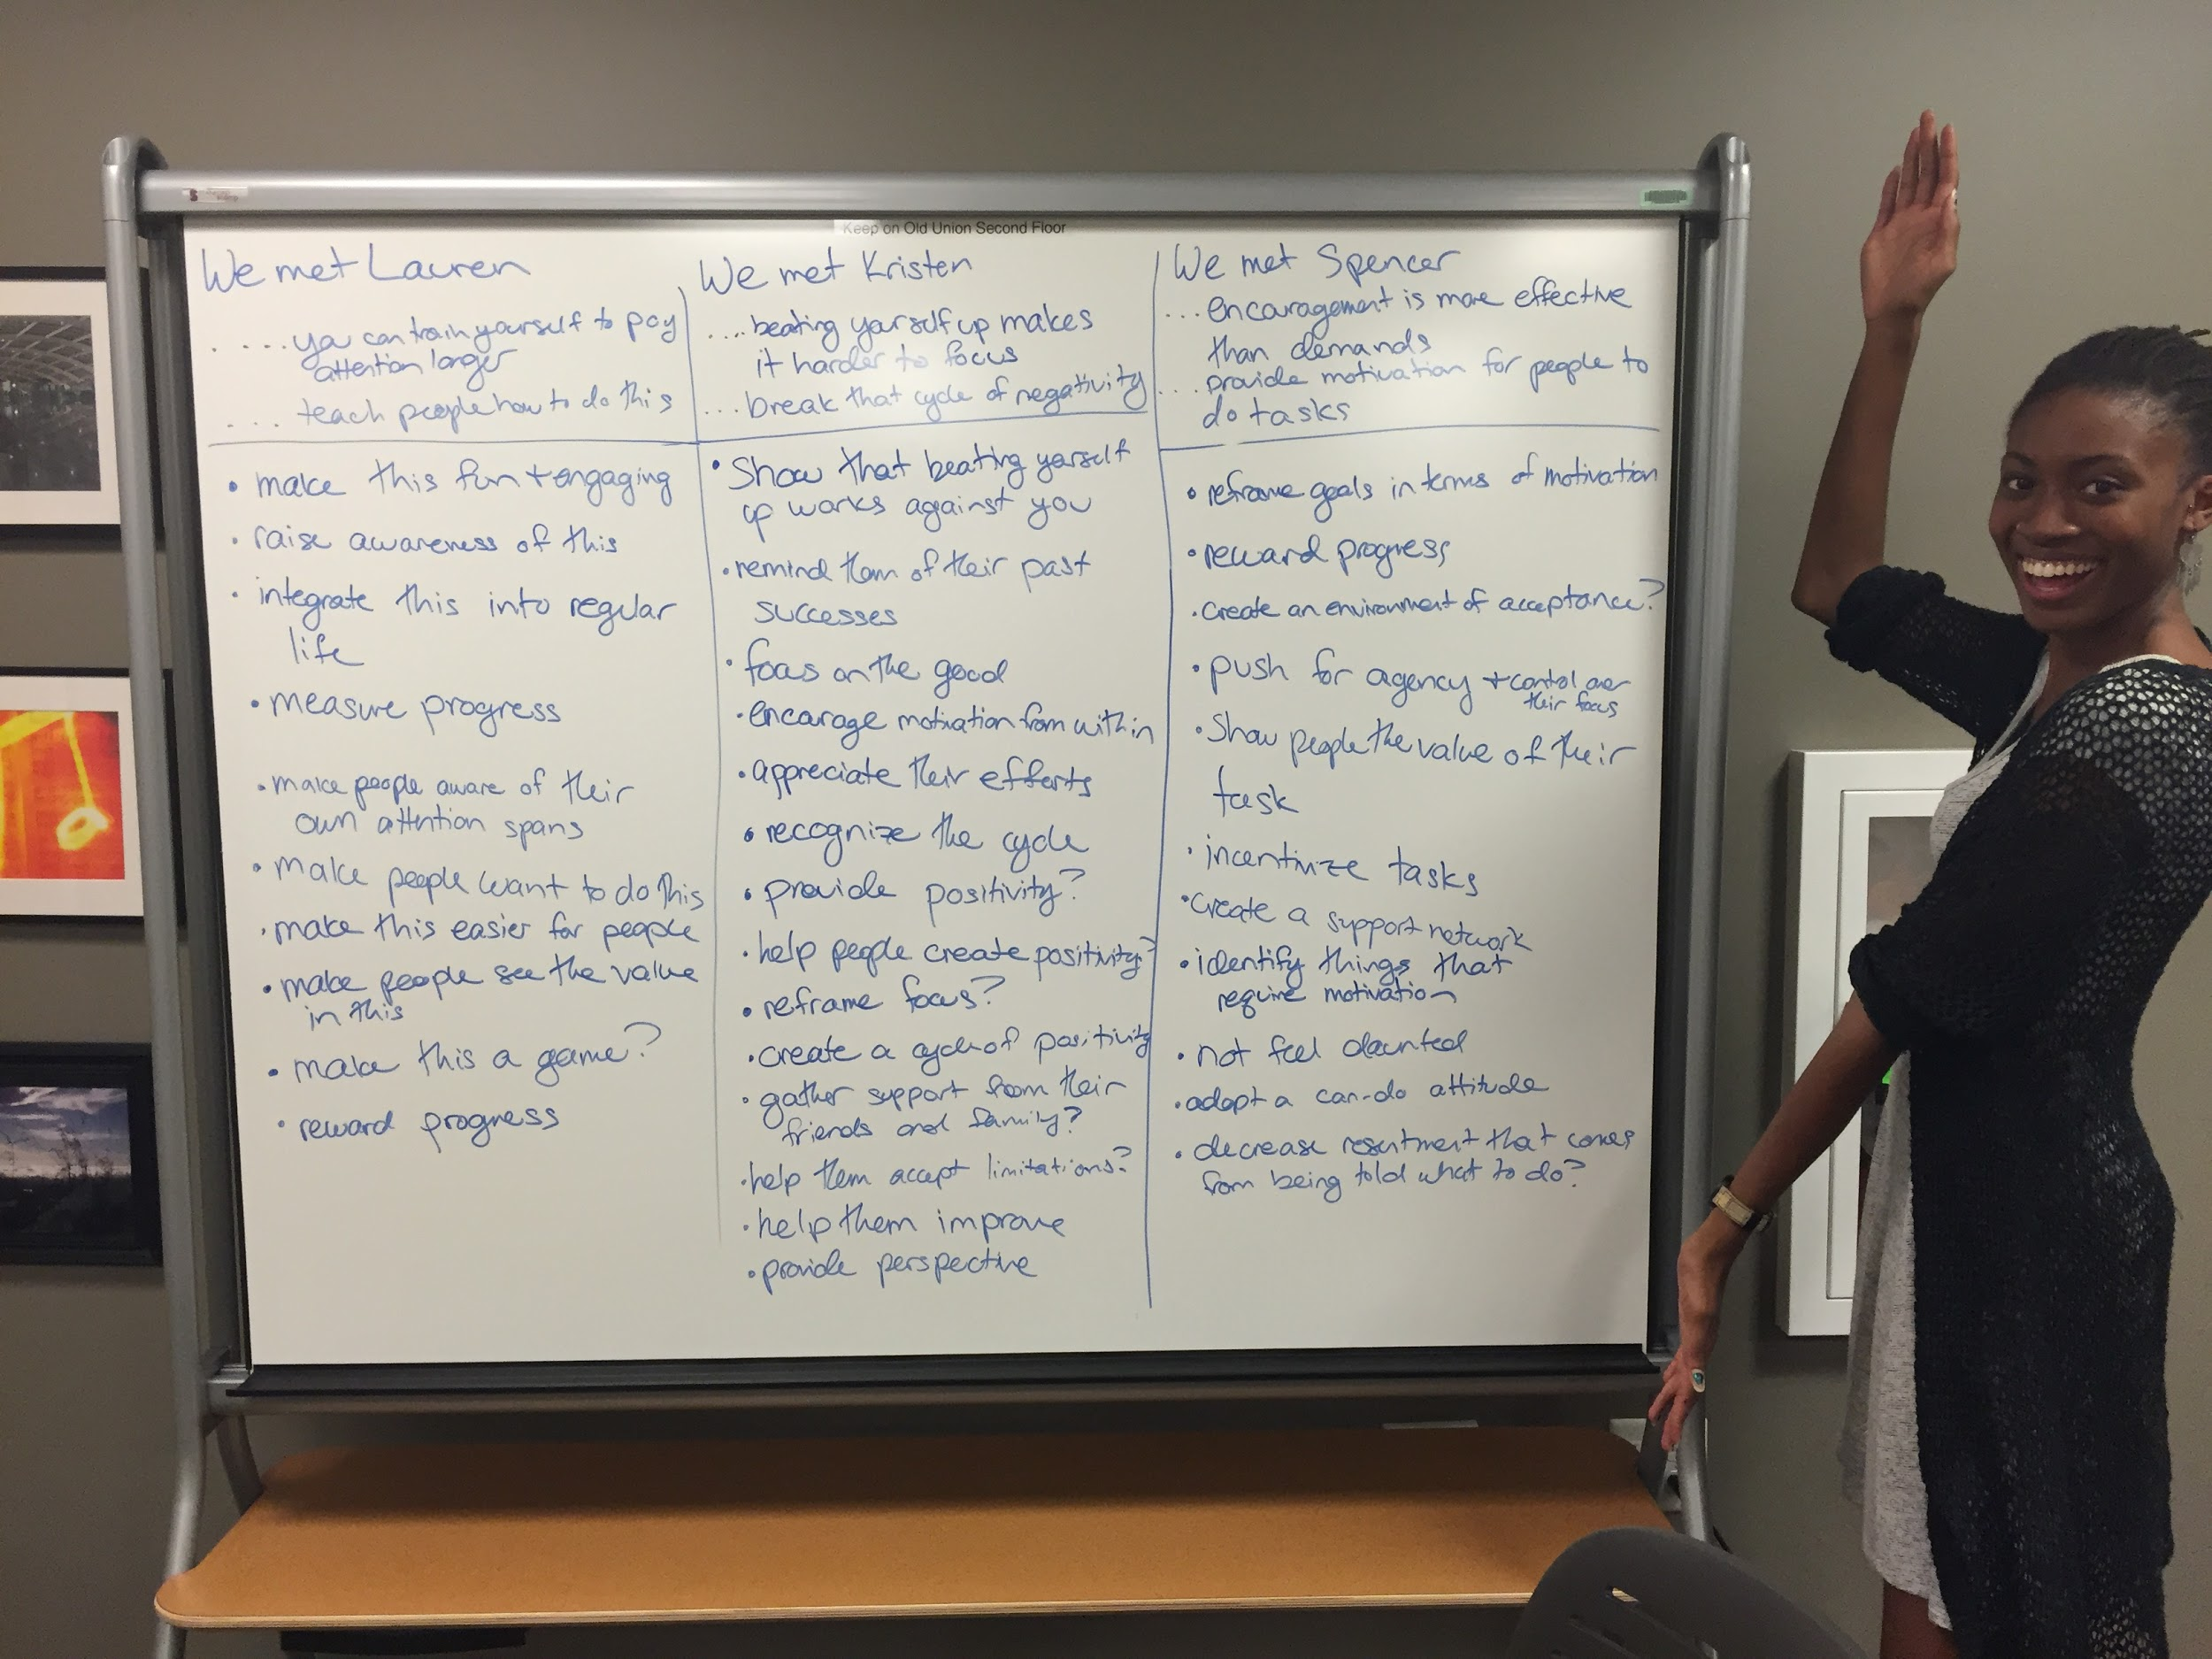 Keep on Old Union Second Floor
We met Lauren
....you can train yourself to pay
attention longer
... teach people how to do this
• make this fun + engaging
• raise awareness of this
• integrate this into regular
life
• measure progress
• make people aware of their
own attention spans
• make people want to do this
• make this easier for people
• make people see the value
in this
• make this a game?
• reward progress
We met Kristen
....beating yourself up makes
it harder to focus
...break that cycle of negativity
• Show that beating yourself
up works against you
• remind them of their past
successes
• focus on the good
• encourage motivation from within
• appreciate their efforts
• recognize the cycle
• provide positivity?
• help people create positivity?
• reframe focus?
• create a cycle of positivity
• gather support from their
friends and family?
• help them accept limitations?
• help them improve
• provide perspective
We met Spencer
...encouragement is more effective
than demands
...provide motivation for people to
do tasks
• reframe goals in terms of motivation
• reward progress
• create an environment of acceptance?
• push for agency + control over
their focus
• Show people the value of their
task
• incentivize tasks
• create a support network
• identify things that
require motivation
• not feel daunted
• adopt a can-do attitude
• decrease resentment that comes
from being told what to do?